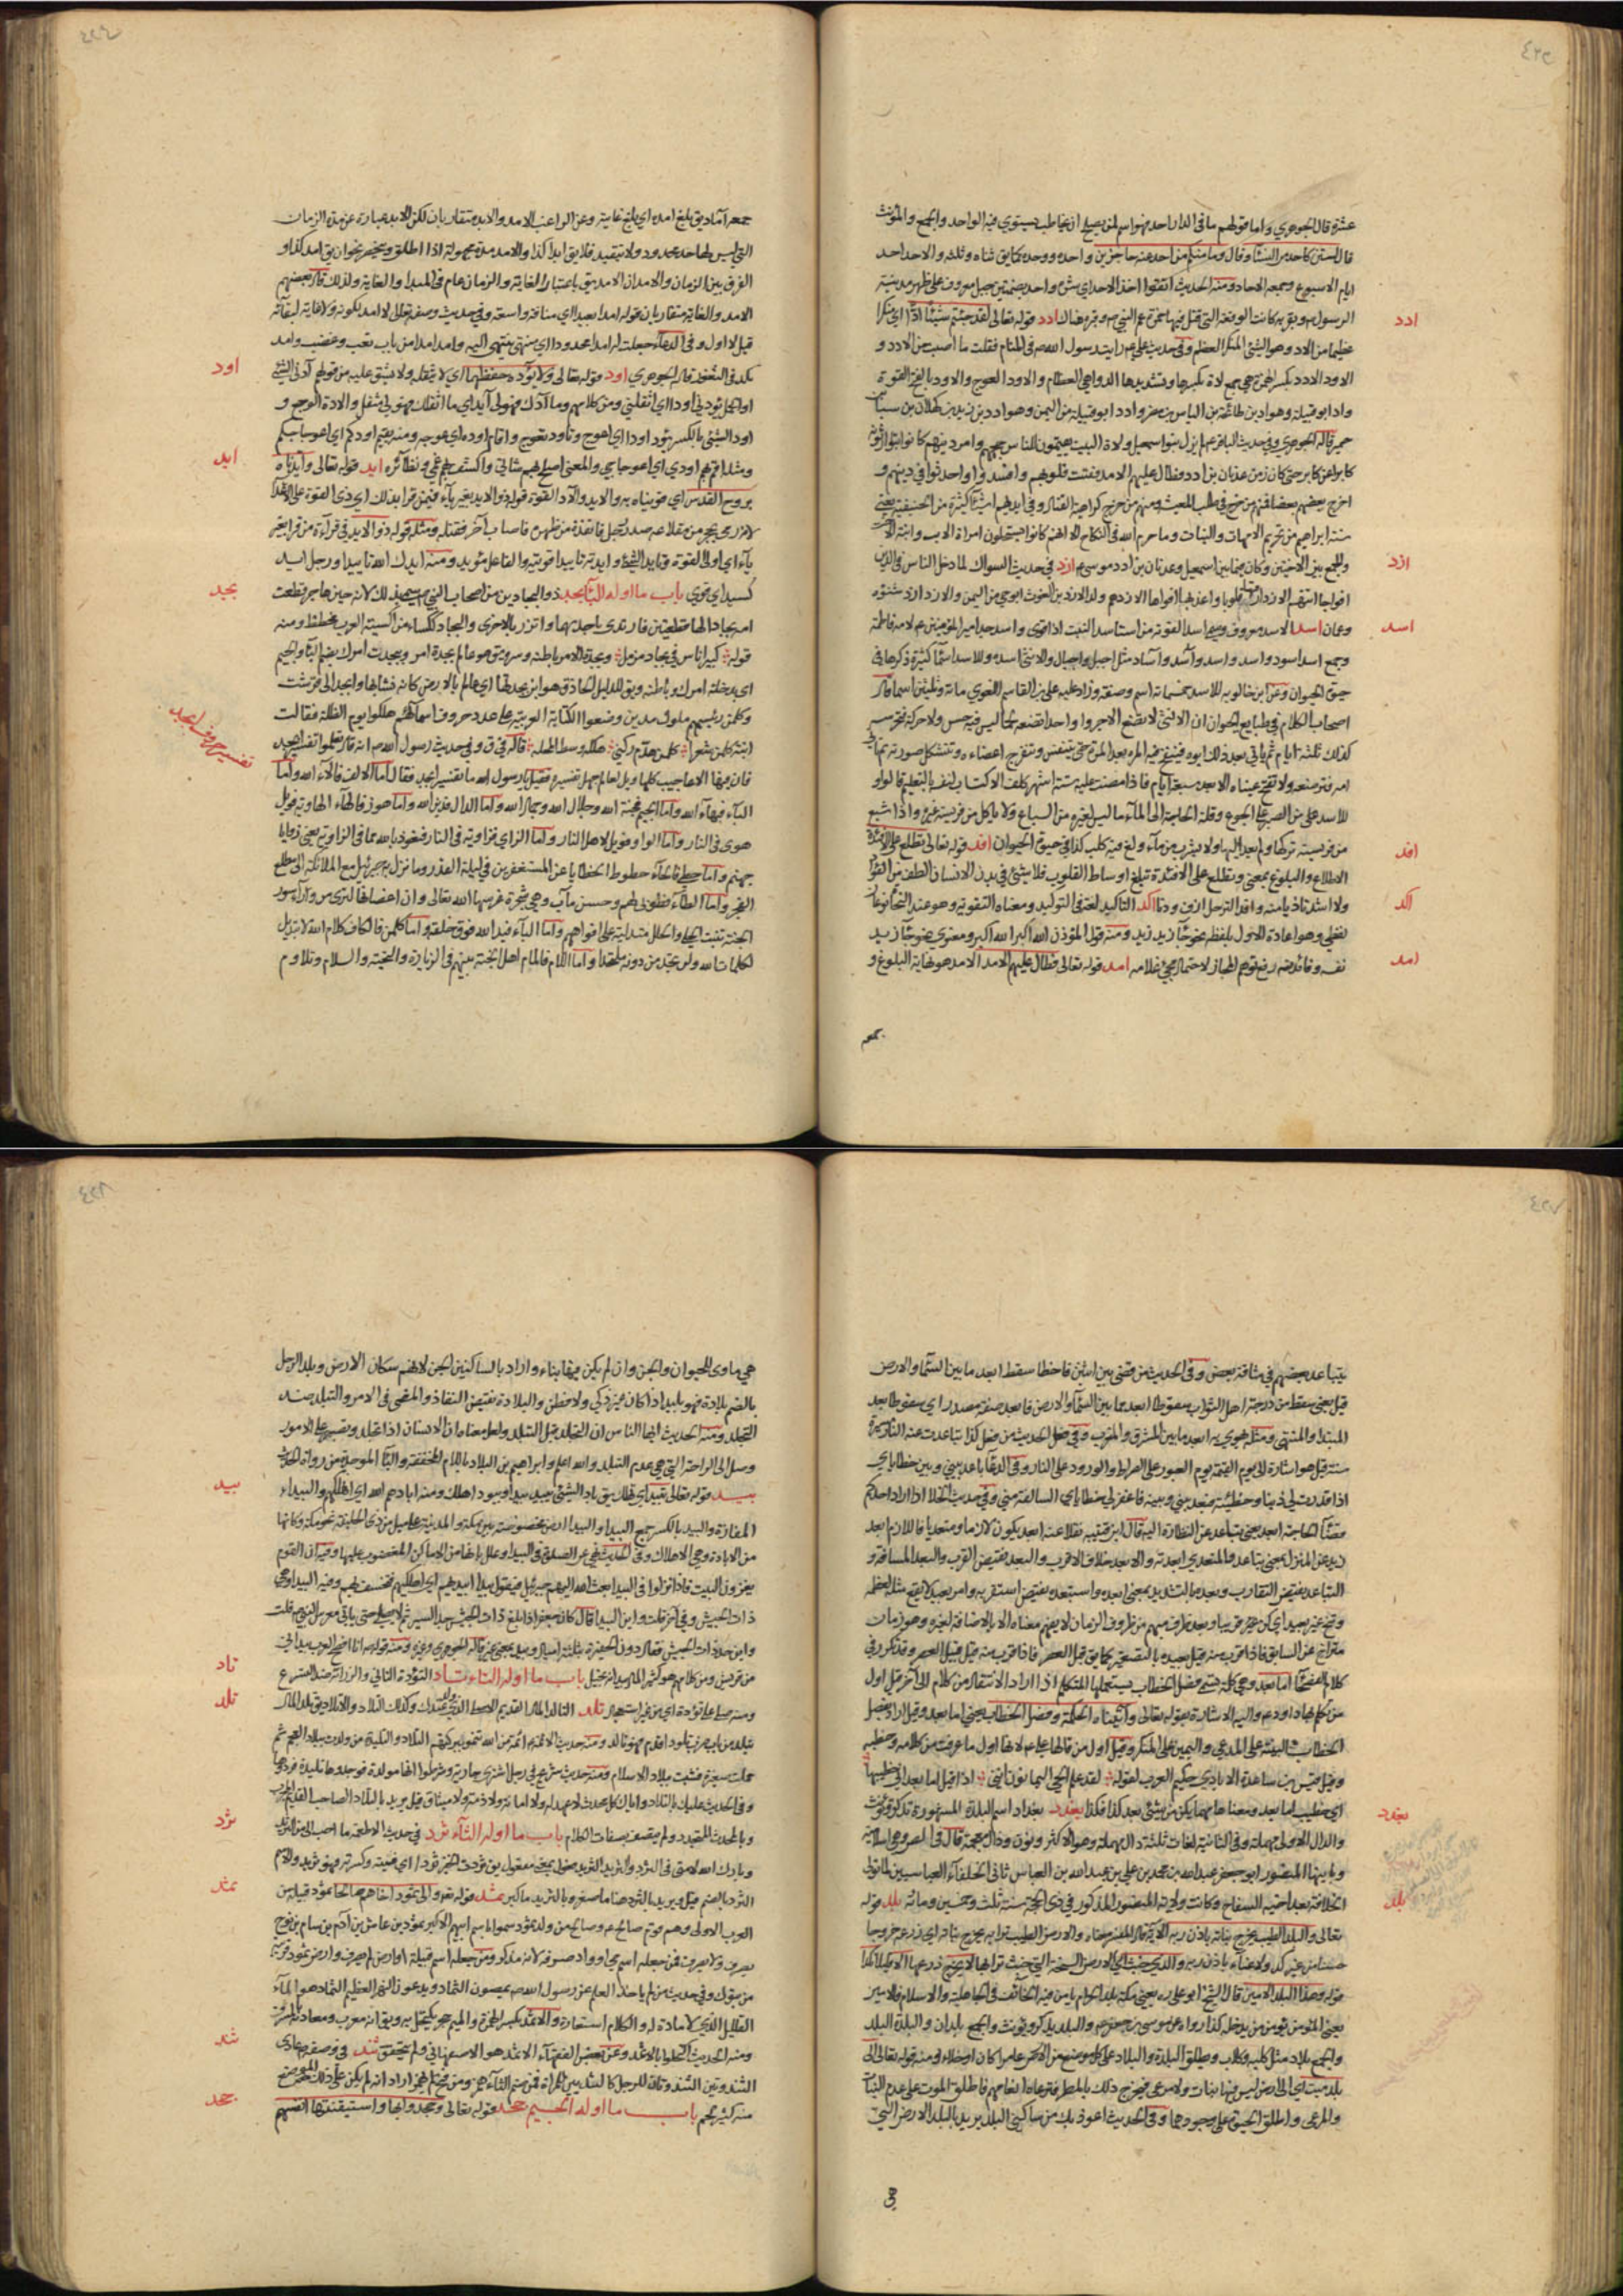 عشرة قال الجوهري واما قولهم ما في الدار احد فهو اسم لمن يصلح ان يخاطب يستوي فيه الواحد والجمع والمؤنث
قال لستن كاحد من النساء وقال وما منكم من احد عنه حاجزين واحده ووحده كما يق ثناه وثلثه والاحد احد
ايام الاسبوع وجمعه الاحاد ومنه الحديث
ادد
الرسول ص وبقربه كانت الوقعة التي قتل فيها حمزة عم النبي ص وقبره هناك ادد قوله تعالى لقد جئتم شيئا ادا اي منكرا
عظيما من الادد وهو الشئ المنكر العظيم وفي حديث علي ع رايت رسول الله ص في المنام فقلت ما اصبت من الادد و
الاود الادد بكسر الهمزة هي جمع ادة بكسرها وتشديدها الدواهي العظام والاود العوج والاود بالفتح القوة
واد ابو قبيلة وهو اد بن طابخة بن الياس بن مضر وادد ابو قبيلة من اليمن وهو ادد بن زيد بن كهلان بن سبا بن
حمير قاله الجوهري وفي حديث الباقر ع لم يزل بنو اسمعيل ولاة البيت يقيمون للناس حجهم وامر دينهم كانوا يتوارثونه
كابرا عن كابر حتى كان زمن عدنان بن ادد فطال عليهم الامد فقست قلوبهم وافسدوا واحدثوا في دينهم و
اخرج بعضهم بعضا فمنهم من خرج في طلب المعيشة ومنهم من خرج كراهية القتال وفي ايديهم اشياء كثيرة من الحنيفية يعني
سنة ابراهيم من تحريم الامهات والبنات وما حرم الله في النكاح الا انهم كانوا يستحلون امراة الاب وابنة الاخت
ازد
والجمع بين الاختين وكان فيما بين اسمعيل وعدنان بن ادد موسى ع ازد في حديث السواك لما دخل الناس في الدين
افواجا اتتهم الازد ارقها قلوبا واعذبها افواها الازد هو ولد الازد بن الغوث ابو حي من اليمن والازد ازد شنوه
اسد
وعمان اسد الاسد معروف
وجمع اسد اسود واسد واسد وآسد وآساد مثل اجبل واجبال والانثى اسده وللاسد اسماء كثيرة ذكرها في
حيوة الحيوان وعن ابن خالويه للاسد خمسمائة اسم وصفة وزاد عليه علي بن القاسم اللغوي مائة وثلثين اسما قال
اصحاب الكلام في طبايع الحيوان ان الانثى لا تضع الا جروا واحدا تضعه لحما ليس فيه حس ولا حركة فتحرسه
كذلك ثلثة ايام ثم ياتي بعد ذلك ابوه فينفخ فيه المره بعد المرة حتى يتنفس وتنفرج اعضاءه وتتشكل صورته ثم تاتي
امه فترضعه ولا تفتح عيناه الا بعد سبعة ايام فاذا مضت عليه ستة اشهر كلف الاكتساب لنفسه بالتعليم قالوا و
للاسد على من الصبر على الجوع وقلة الحاجة الى الماء ما ليس لغيره من السباع ولا ياكل من فريسة غيره واذا شبع
افد
من فريسته تركها ولم يعد اليها ولا يشرب من ماء ولغ فيه كلب كذا في حيوة الحيوان افد قوله تعالى تطلع على الافئدة
الاطلاع والبلوغ بمعنى وتطلع على الافئدة تبلغ اوساط القلوب فلا شئ في بدن الانسان الطف من الفؤاد
اكد
ولا اشد تاذيا منه وافد الترحل ازف ودنا اكد التاكيد لغة في التوكيد ومعناه التقوية وهو عند النحاة نوعان
لفظي وهو اعادة الاول بلفظه نحو جاء زيد زيد ومنه قول المؤذن الله اكبر الله اكبر ومعنوي نحو جاء زيد
امد
نفسه وفائدته رفع توهم المجاز لاحتمال مجئ غلامه امد قوله تعالى فطال عليهم الامد الامد هو نهاية البلوغ و
جمعه
جمعه آماد يق بلغ امده اي بلغ غايته وعن الراغب الامد والابد متقاربان لكن الابد عبارة عن مدة الزمان
التي ليس لها حد محدود ولا تتقيد فلا يق ابدا كذا والامد مدة مجهولة اذا اطلق وينحصر نحو ان يق امد كذا و
الفرق بين الزمان والامد ان الامد يق باعتبار الغاية والزمان عام في المبدا والغاية ولذلك قال بعضهم
الامد والغاية متقاربان قوله امدا بعيدا اي مسافة واسعة وفي حديث وصفه تعالى لا امد لكونه ولا غاية لبقائه
قيل لا اول وفي الدعاء جعلت له امدا محدودا اي منتهى ينتهي اليه وامد امدا من باب تعب وغضب وامد
اود
بلد في الثغور قاله الجوهري اود قوله تعالى ولا يؤده حفظهما اي لا يثقله ولا يشق عليه من قولهم آدني الشئ
او الحمل يؤدني اودا اي اثقلني ومن كلامهم وما آدك فهو لي آيد اي ما اثقلك فهو لي مثقل والادة الوجع و
اود الشئ بالكسر يأود اودا اي اعوج وتأود تعوج واقام اوده اي عوجه ومنه يقيم اودكم اي اعوجاجكم
ايد
ومثله اقم بهم اودي اي اعوجاجي والمعنى اصلح بهم شاني واكشف بهم غمي ونظائره ايد قوله تعالى وايدناه
بروح القدس اي قويناه به والايد والآد القوة قوله ذو الايد بغير ياء فيمن قرا بذلك اي ذي القوة على الاعداء
لانه رمى بحجر من مقلاعه صدر رجل فانفذه من ظهره فاصاب آخر فقتله ومثله قوله ذو الايد في قراءة من قرا بغير
ياء اي اولي القوة وتايد الشئ وايدته تاييدا قويته والفاعل مؤيد ومنه ايدك الله تاييدا ورجل ايد
بجد
كسيد اي قوي باب ما اوله الباء بجد ذو البجادين من اصحاب النبي ص سمي بذلك لانه حين هاجر قطعت
امه بجادا لها قطعتين فارتدى باحديهما واتزر بالاخرى والبجاد ككساء من اكسية العرب مخططة ومنه
قوله كبير اناس في بجاد مزمل وبجدة الامر باطنه وسره يق هو عالم ببجدة امر وببجدت امرك بضم الباء والجيم
اي بدخلة امرك وباطنه ويق للدليل الحاذق هو ابن بجدتها اي عالم بالارض كانه نشا بها وابجد الى قرشت
وكلمن رئيسهم ملوك مدين وضعوا الكتابة العربية على عدد حروف اسمائهم هلكوا يوم الظلة فقالت
تفسير حروف ابجد
ابنة كلمن شعرا كلمن هدم ركني هلكه وسط المحله قاله في ق وفي حديث رسول الله ص انه قال تعلموا تفسير ابجد
فان فيها الاعاجيب كلها ويل لعالم جهل تفسيره فقيل يا رسول الله ما تفسير ابجد فقال اما الالف فآلاء الله واما
الباء فبهاء الله واما الجيم فجنة الله وجلال الله وجمال الله واما الدال فدين الله واما هوز فالهاء الهاوية فويل
هوى في النار واما الواو فويل لاهل النار واما الزاي فزاوية في النار فنعوذ بالله مما في الزاوية يعني زوايا
جهنم واما حطي فالحاء حطوط الخطايا عن المستغفرين في ليلة القدر وما نزل به جبرئيل مع الملائكة الى مطلع
الفجر واما الطاء فطوبى لهم وحسن مآب وهي شجرة غرسها الله تعالى وان اغصانها لترى من وراء سور
الجنة تنبت الحلي والحلل متدلية على افواههم واما الياء فيد الله فوق خلقه واما كلمن فالكاف كلام الله لا تبديل
لكلمات الله ولن تجد من دونه ملتحدا واما اللام فالمام اهل الجنة بينهم في الزيارة والتحية والسلام وتلاوم
يتباعد بعضهم في مثافنة بعض وفي الحديث من قضى بين اثنين فاخطا سقط ابعد ما بين السماء والارض
قيل يعني سقط من درجة اهل الثواب سقوطا ابعد مما بين السماء والارض فابعد صفة مصدر اي سقوطا بعد
المبتدا والمنتهى ومثله هوى به ابعد ما بين المشرق والمغرب وفي فضل الحديث من فعل كذا تباعدت عنه النار مسيرة
سنة قيل هو اشارة الى يوم القيمة يوم العبور على الصراط والورود على النار وفي الدعاء باعد بيني وبين خطاياي
اذا قدرت لي ذنبا وخطيئة فبعد بيني وبينه فاغفر لي خطاياي السالفة مني وفي حديث الخلا اذا اراد احدكم
قضاء الحاجة ابعد يعني تباعد عن النظارة اليه قال ابن قتيبه نقلا عنه ابعد يكون لازما ومتعديا فاللازم ابعد
زيد عن المنزل بمعنى تباعد والمتعدي ابعدته والابعد خلاف الاقرب والبعد نقيض القرب والبعد المسافة و
التباعد نقيض التقارب وبعده بالتشديد بمعنى ابعده واستبعده نقيض استقربه وامر بعيد لا يقع مثله لعظمه
وتنح غير بعيد اي كن غير قريب وبعد ظرف مبهم من ظروف الزمان لا يفهم معناه الا بالاضافة لغيره وهو زمان
متراخ عن السابق فاذا قرب منه قيل بعيده بالتصغير كما يق قبل العصر فاذا قرب منه قيل قبيل العصر وقد تكرر في
كلام الفصحاء اما بعد وهي كلمة تسمى فصل الخطاب يستعملها المتكلم اذا اراد الانتقال من كلام الى آخر قيل اول
من تكلم بها داود ع واليه الاشارة بقوله تعالى وآتيناه الحكمة وفصل الخطاب يعني اما بعد وقيل اراد بفصل
الخطاب البينة على المدعي واليمين على المنكر وقيل اول من قالها علي ع لانها اول ما عرفت من كلامه وخطبه
وقيل قس بن ساعدة الايادي حكيم العرب لقوله لقد علم الحي اليمانون انني اذا قيل اما بعد اني خطيبها
بغدد
اي خطيب اما بعد ومعناها مهما يكن من شئ بعد كذا فكذا بغدد بغداد اسم البلدة المشهورة تذكر وتؤنث
والدال الاولى مهملة وفي الثانية لغات ثلثة دال مهملة وهو الاكثر ونون وذال معجمة قال في المص وهي اسلامية
وبانيها المنصور ابو جعفر عبد الله بن محمد بن علي بن عبد الله بن العباس ثاني الخلفاء العباسيين لما تولى
بلد
الخلافة بعد اخيه السفاح وكانت ولاية المنصور المذكور في ذي الحجة سنة ثلث وخمسين ومائه بلد قوله
تعالى والبلد الطيب يخرج نباته باذن ربه الآية قال المفسر معناه والارض الطيب ترابه يخرج نباته اي زرعه خروجا
حسنا من غير كد ولا عناء باذن ربه والذي خبث اي الارض السبخة التي خبث ترابها لا يخرج زرعها الا نكدا
قوله وهذا البلد الامين قال الشيخ ابو علي ره يعني مكة بلد الحرام يامن فيه الخائف في الجاهلية والاسلام فالامين
يعني المؤمن يؤمن من يدخله كذا رواه عن موسى بن جعفر ع والبلد يذكر ويؤنث والجمع بلدان والبلدة البلد
والجمع بلاد مثل كلبة وكلاب ويطلق البلدة والبلاد على كل موضع من الارض عامرا كان او خلاء ومنه قوله تعالى الى
بلد ميت اي الى ارض ليس فيها نبات ولا مرعى فيخرج ذلك بالمطر فترعاه انعامهم فاطلق الموت على عدم النبات
والمرعى واطلق الحيوة على وجودهما وفي الحديث اعوذ بك من ساكني البلد يريد بالبلد الارض التي
هي
هي ماوى للحيوان والجن وان لم يكن فيها بناء واراد بالساكنين الجن لانهم سكان الارض وبلد الرجل
بالضم بلادة فهو بليد اذا كان غير ذكي ولا فطن والبلادة نقيض النفاذ والمضي في الامر والتبلد ضد
التجلد ومنه الحديث ايها الناس ان التجلد قبل التبلد ولعل معناه ان الانسان اذا تجلد وتصبر على الامور
وصل الى الراحة التي هي عدم التبلد والله اعلم وابراهيم بن ابي البلاد باللام المخففة والباء الموحدة من رواة الحديث
بيد
بيد قوله تعالى تبيد اي تهلك يق باد الشئ يبيد بيدا وبيودا هلك ومنه ابادهم الله اي اهلكهم والبيداء
المفازة والبيد بالكسر جمع البيداء والبيداء ارض مخصوصة بين مكة والمدينة على ميل من ذي الحليفة نحو مكة وكانها
من الابادة وهي الاهلاك وفي الحديث نهي عن الصلوة في البيداء وعلل بانها من الاماكن المغضوب عليها وقيل ان القوم
يغزون البيت فاذا نزلوا في البيداء بعث الله اليهم جبرئيل فيقول بيداء ابيديهم اي اهلكيهم فتخسف بهم وفيه البيداء هي
ذات الجيش وفي آخر قلت واين البيداء قال كان جعفر اذا بلغ ذات الجيش جد السير ثم لا يصلي حتى ياتي معرس النبي ص قلت
واين حد ذات الجيش فقال دون الحفيرة بثلثة اميال وبيد بمعنى غير قاله الجوهري وغيره ومنه قوله ص انا افصح العرب بيد اني
تاد
من قريش ومن كلامهم هو كثير المال بيد انه بخيل باب ما اوله التاء تاد التؤدة التاني والرزانة ضد التسرع
تلد
ومنه صلى على تؤدة اي من غير استعجال تلد التالد المال القديم الاصلي الذي ولد عندك وكذلك التلاد والاتلاد يق تلد المال
يتلد من باب ضرب تلودا قدم فهو تالد ومنه حديث الائمة ع ائمة من الله ينمو ببركتهم التلاد والتليد من ولد ببلاد العجم ثم
حملت صغيرة فثبت ببلاد الاسلام ومنه حديث شريح في رجل اشترى جارية وشرطوا انها مولدة فوجدوها تليدة فردها
وفي الحديث عليك بالتلاد واياك كل محدث لا عهد له ولا امانة ولا ذمة ولا ميثاق قيل يريد بالتلاد الصاحب القديم المجرب
ثرد
وبالمحدث المتجدد ولم يتصف بصفات الكلام باب ما اوله الثاء ثرد في حديث الاطعمة ما احب الى من الثريد
وبارك الله لامتي في الثرد والثريد الثريد فعيل بمعنى مفعول يق ثردت الخبز ثردا اي فتيته وكسرته فهو ثريد والاسم
ثمد
الثرد بالضم قيل ويريد بالثرد هنا ما صغر وبالثريد ما كبر ثمد قوله تعالى والى ثمود اخاهم صالحا ثمود قبيلة من
العرب الاولى وهم قوم صالح ع وصالح من ولد ثمود سموا باسم ابيهم الاكبر ثمود بن عاثر بن ارم بن سام بن نوح
يصرف ولا يصرف فمن جعله اسم حي او واد صرفه لانه مذكر ومن جعله اسم قبيلة او ارض لم يصرف وارض ثمود قريبة
من تبوك وفي حديث من لم ياخذ العلم عن رسول الله ص يمصون الثماد ويدعون النهر العظيم الثماد هو الماء
القليل الذي لا مادة له والكلام استعارة والاثمد بكسر الهمزة والميم حجر يكتحل به ويق انه معرب ومعادنه بالمشرق
ثند
ومنه الحديث اكتحلوا بالاثمد وعن بعض الفقهاء الاثمد هو الاصفهاني ولم يتحقق ثند وفي وصفه ص عاري
الثندوتين الثندوتان للرجل كالثديين للمراة فمن ضم الثاء همز ومن فتح لم يهمز اراد انه لم يكن على ذلك الموضع
جحد
منه كثير لحم باب ما اوله الجيم جحد قوله تعالى وجحدوا بها واستيقنتها انفسهم